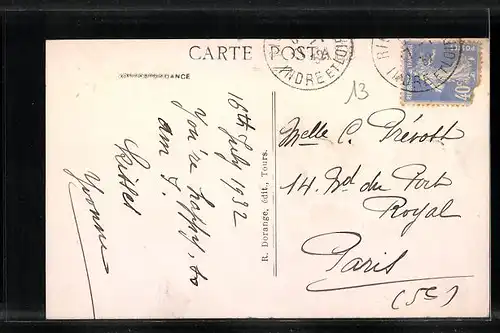 CARTE POSTA
INDRE ET LOIRE
INDRE ET LOIRE
40
13
DANCE
16th July 1932
You're happy, so
am I.
Kisses
Yvonne
R. Dorange, édit., Tours.
Melle C. Prévost
14. Bd du Port
Royal
Paris
(5e)